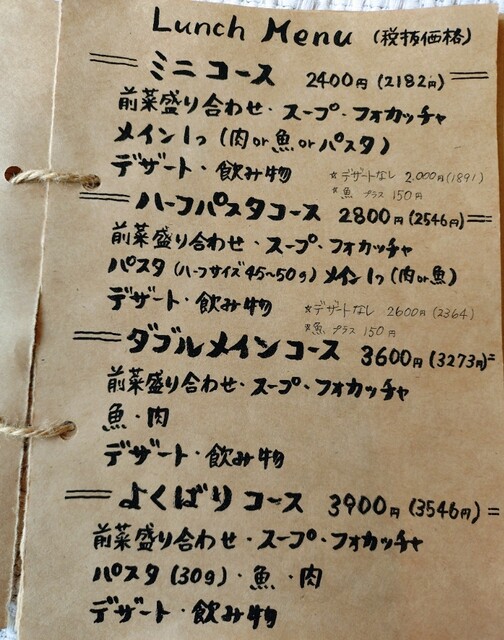 Lunch Menu (税抜価格)
ミニコース 2400円(2182円)
前菜盛り合わせ・スープ・フォカッチャ
メイン1つ(肉or魚orパスタ)
デザート・飲み物 ☆デザートなし 2,000円(1891)
☆魚 プラス 150円
ハーフパスタコース 2800円(2546円)
前菜盛り合わせ・スープ・フォカッチャ
パスタ(ハーフサイズ45~50g)メイン1つ(肉or魚)
デザート・飲み物 ☆デザートなし 2600円(2364)
☆魚 プラス 150円
ダブルメインコース 3600円(3273円)
前菜盛り合わせ・スープ・フォカッチャ
魚・肉
デザート・飲み物
よくばりコース 3900円(3546円)
前菜盛り合わせ・スープ・フォカッチャ
パスタ(30g)・魚・肉
デザート・飲み物